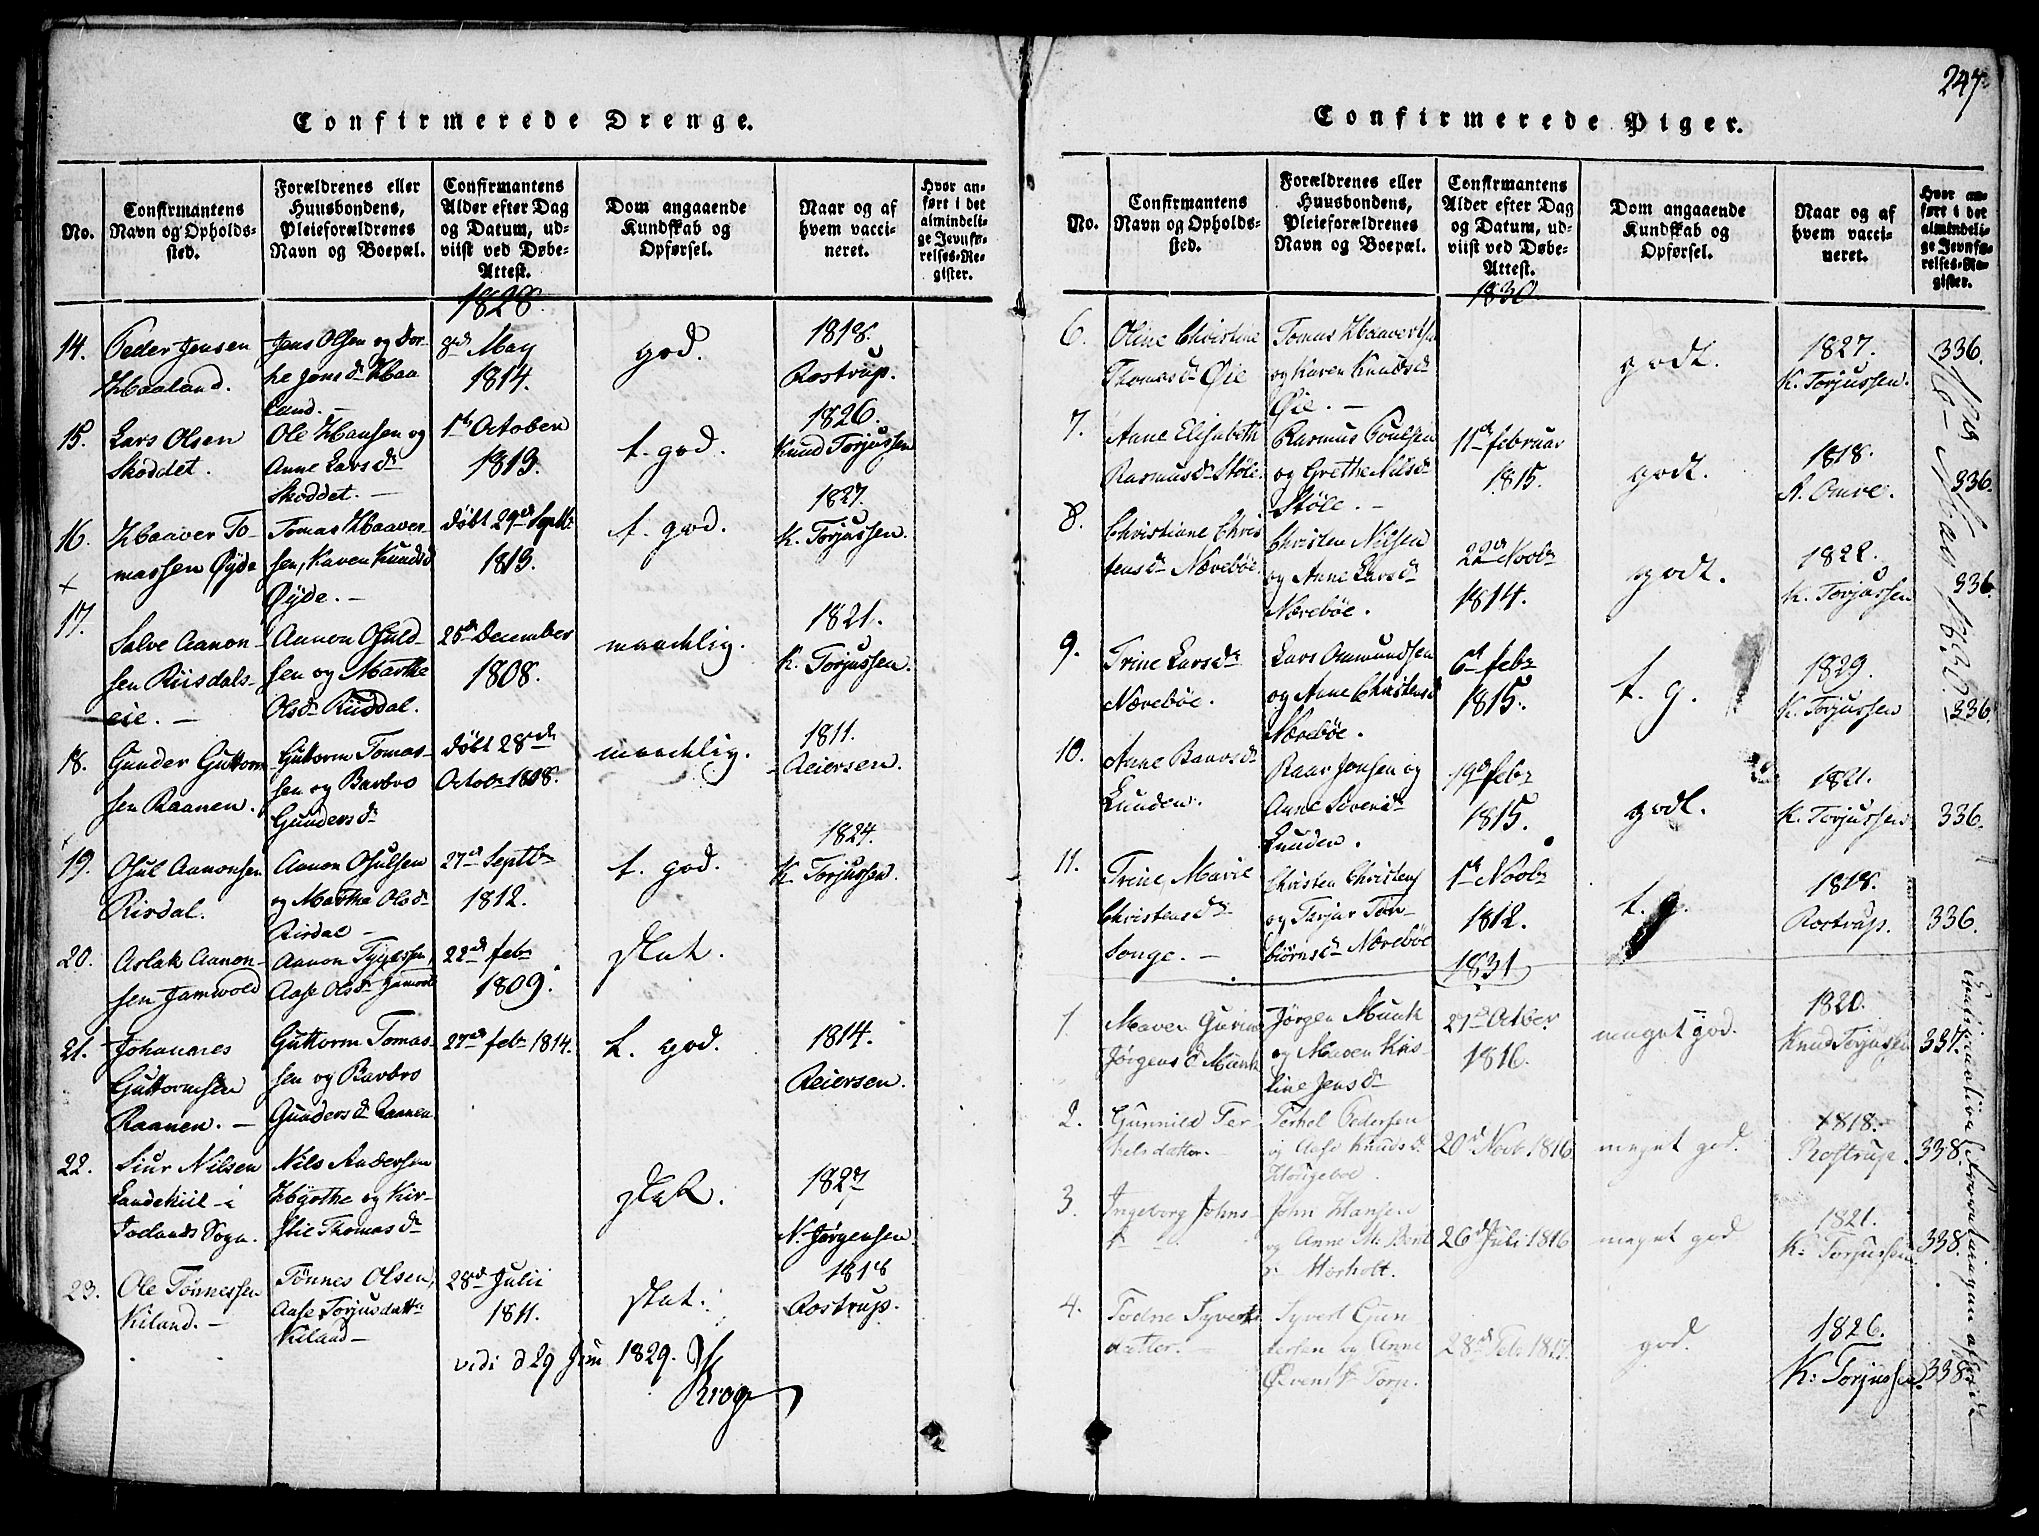 247.
Confirmerede Drenge.
No.
Confirmantens
Navn og Opholds-
sted.
Forældrenes eller
Huusbondens,
Pleieforældrenes
Navn og Boepæl.
Confirmantens
Alder efter Dag
og Datum, ud-
viist ved Døbe-
Attest.
Dom angaaende
Kundskab og
Opførsel.
Naar og af
hvem vacci-
neret.
Hvor an-
ført i det
almindeli-
ge Jevnfø-
relses-Re-
gister.
1828.
14.
Peder Jensen
Haaland.
Jens Olsen og Dor-
the Jensd. Haa
land. —
8de May
1814.
god.
1818.
Rostrup.
15.
Lars Olsen
Skoddet.
Ole Hansen og
Anne Larsd.
Skoddet. —
1st October
1813.
t. god.
1826.
Knud Torjussen
16.
Haaver To-
massen Øyde
Tomas Haaver
sen, Karen Knudsd
Øyde. —
døbt 29de Septbr
1813.
t. god.
1827.
K. Torjussen.
17.
Salve Aanon-
sen Riisdals-
eie. —
Aanon Osuld-
sen og Marthe
Olsd. Riisdal.
26de December
1808.
maadelig.
1821.
K. Torjussen.
18.
Gunder Guttorm
sen Raanen.
Guttorm Tomas-
sen og Barbro
Gundersd.
døbt 28de
Octob. 1808.
maadelig.
1811.
Reiersen.
19.
Osul Aanonsen
Risdal.
Aanon Osulsen
og Martha Olsd.
Risdal —
27de Septbr
1812.
t. god.
1824.
K. Torjussen.
20.
Aslak Aanon-
sen Jamvold
Aanon Tygessen
Aase Olsd. Jamvold
22de febr
1809.
slet.
21.
Johannes
Guttormsen
Raanen. —
Guttorm Tomas-
sen og Barbro
Gundersd. Raanen
27de febr 1814.
t. god.
1814.
Reiersen.
22.
Siur Nilsen
Landekiil i
Sogn.
Nils Andersen
og Kir-
stie Thomasd.
slet.
1827
N. Jørgensen.
23.
Ole Tønnessen
Kiland. —
Tønnes Olsen,
Aase Torjusdatter
Kiland —
28de Julii
1811.
slet.
1818
Rostrup.
vidi d 29 Juni 1829.
Krog
Confirmerede Piger.
No.
Confirmantens
Navn og Opholds-
sted.
Forældrenes eller
Huusbondens,
Pleieforældrenes
Navn og Boepæl.
Confirmantens
Alder efter Dag
og Datum, ud-
viist ved Døbe-
Attest.
Dom angaaende
Kundskab og
Opførsel.
Naar og af
hvem vacci-
neret.
Hvor an-
ført i det
almindeli-
ge Jevnfø-
relses-Re-
gister.
1830.
6.
Oline Christine
Thomasd. Øie
Tomas Haavertsen
og Karen Knudsd
Øie. —
godt.
1827.
K. Torjussen.
336.
7.
Anne Elisabeth
Rasmusd. Støle
Rasmus Poulsen
og Grethe Nilsd.
Støle. —
11de februar
1815.
godt.
1818.
A. Omre.
336.
8.
Christiane Chris
tensd. Nærebøe
Christen Nilsen
og Anne Larsd.
Nærebøe.
22de Novbr
1814.
godt.
1822.
K. Torjussen
336.
9.
Trine Larsd.
Nærebøe.
Lars Ommundsen
og Anne Christensd
Nærebøe.
6te febr
1815.
t. g.
1829.
K. Torjussen
336.
10.
Anne Baarsd.
Lunden.
Baar Jensen og
Anne Siversd.
Lunden.
19de febr
1815.
godt.
1821.
K. Torjussen
336.
11.
Trine Marie
Christensd.
Songe. —
Christen Christens
og Torjør Tor-
biørnsd. Nærebøe
1st Novbr
1812.
t. g.
1818.
Rostrup.
336.
1831
1.
Maren Gurine
Jørgensd Munk
Jørgen Munk
og Maren Kris-
tine Jensd.
27de Octber
1816.
meget god.
1820.
Knud Torjussen
337.
2.
Gunnild Ter
kelsdatter.
Terkel Pedersen
og Aase Knudsd.
20d Novb. 1816
meget god.
1818.
Rostrup.
338.
3.
Ingeborg Johns-
John Hansen
og Anne M. Bent
Morholt.
26d Juli 1816
meget god
1821.
K: Torjussen
338.
4.
Todne Syverts
datter.
Syvert Gun
dersen og Anne
Øvensd. Torp.
28de Feb. 1817.
god.
1826.
K: Torjussen.
338.